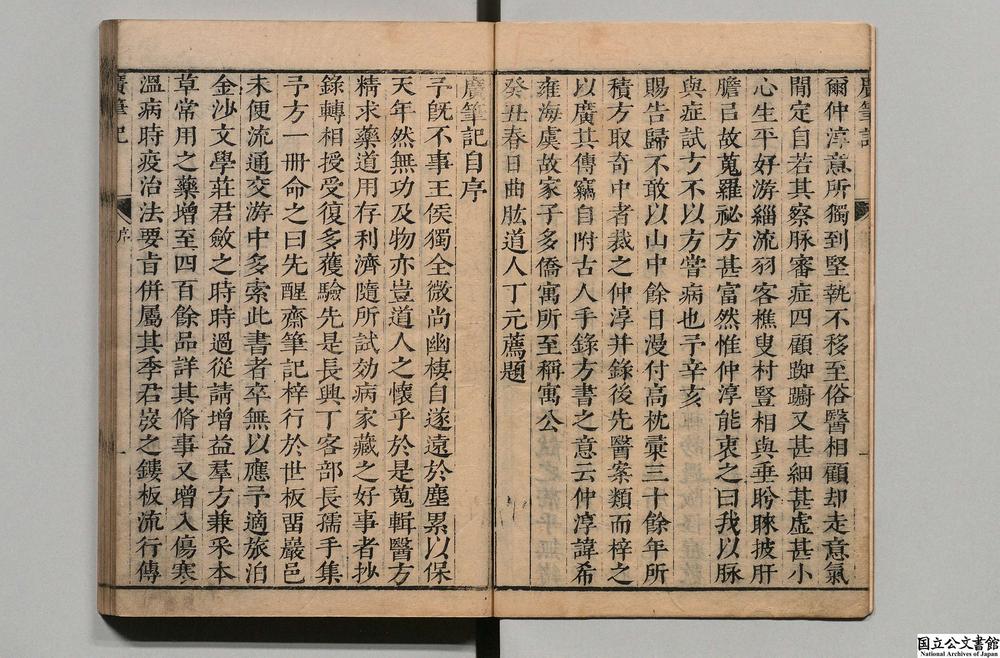 爾仲淳意所獨到堅執不移至俗醫相顧却走意氣
閒定自若其察脉審症四顧踟躕又甚細甚虛甚小
心生平好游緇流羽客樵叟村豎相與垂盻睞披肝
膽已故蒐羅祕方甚富然惟仲淳能衷之曰我以脉
與症試方不以方嘗病也予辛亥
賜告歸不敢以山中餘日漫付高枕彙三十餘年所
積方取奇中者裁之仲淳并錄後先醫案類而梓之
以廣其傳竊自附古人手錄方書之意云仲淳諱希
雍海虞故家子多僑寓所至稱寓公
癸丑春日曲肱道人丁元薦題
廣筆記自序
予旣不事王侯獨全微尚幽棲自遂遠於塵累以保
天年然無功及物亦豈道人之懷乎於是蒐輯醫方
精求藥道用存利濟隨所試効病家藏之好事者抄
錄轉相授受復多獲驗先是長興丁客部長孺手集
予方一冊命之曰先醒齋筆記梓行於世板畱巖邑
未便流通交游中多索此書者卒無以應予適旅泊
金沙文學莊君斂之時時過從請增益羣方兼采本
草常用之藥增至四百餘品詳其脩事又增入傷寒
溫病時疫治法要旨併屬其季君弢之鏤板流行傳
廣筆記
序
一
国立公文書館
National Archives of Japan